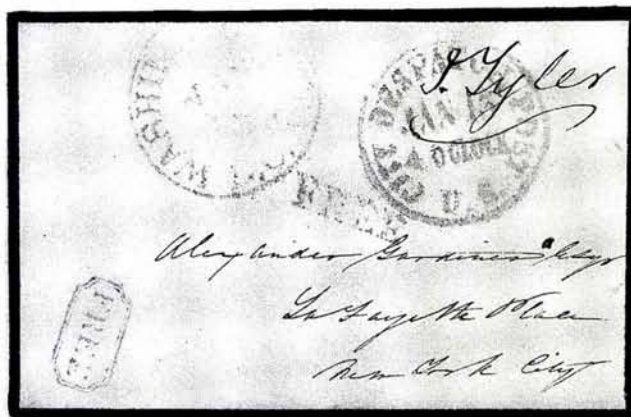 J. Tyler
WASHI
CITY DESPATCH POST
JAN
4 O'CLOCK
U.S.
FREE
Alexander Gardiner Esqr
La Fayette Place
New York City
FREE